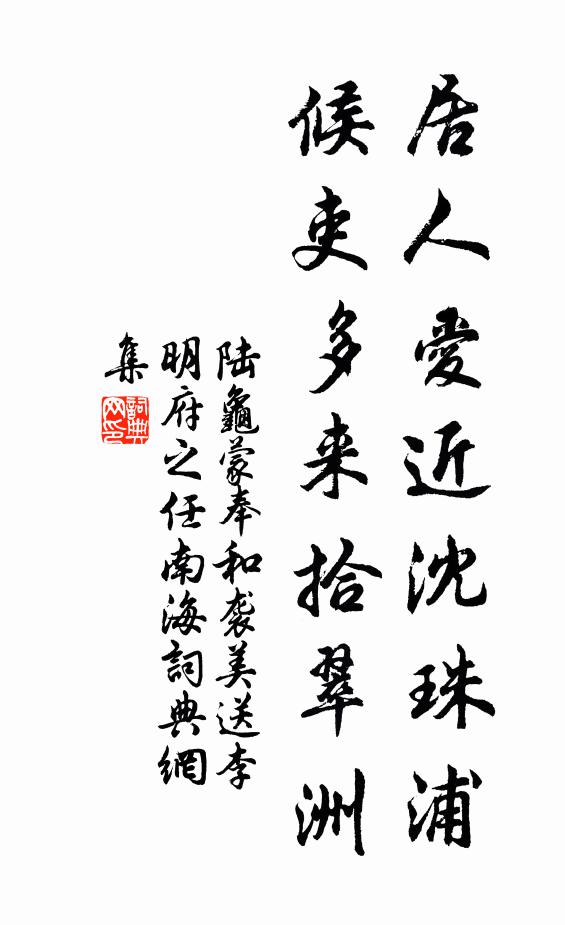 居人愛近沈珠浦
候吏多来拾翠洲
陆龜蒙奉和袭美送李
明府之任南海詞典網
集
詞典
网印